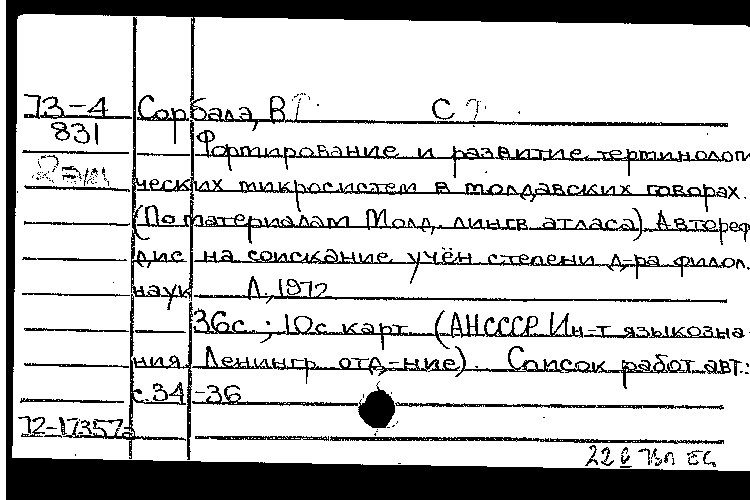 73-4 Сорбалэ, В
831 Формирование и развитие терминологи
2 экз ческих микросистем в молдавских говорах.
(По материалам Молд. лингв. атласа). Автореф
дис на соискание учён степени д-ра филол.
наук Л., 1972
36с.; 10с карт. (АН СССР Ин-т языкозна-
ния. Ленингр. отд-ние). Список работ авт.:
с.34-36
72-17357а